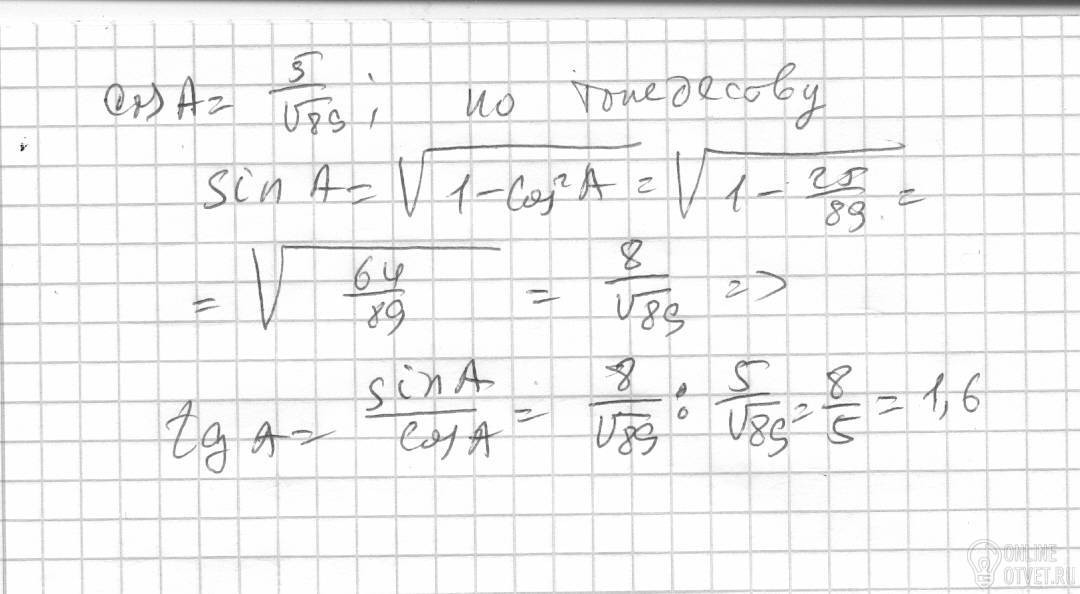 cos A = 5/√89; по
sin A = √(1 - cos²A) = √(1 - 25/89) =
= √(64/89) = 8/√89 =>
tg A = sin A/cos A = 8/√89 : 5/√89 = 8/5 = 1,6
ONLINE
OTVET.RU